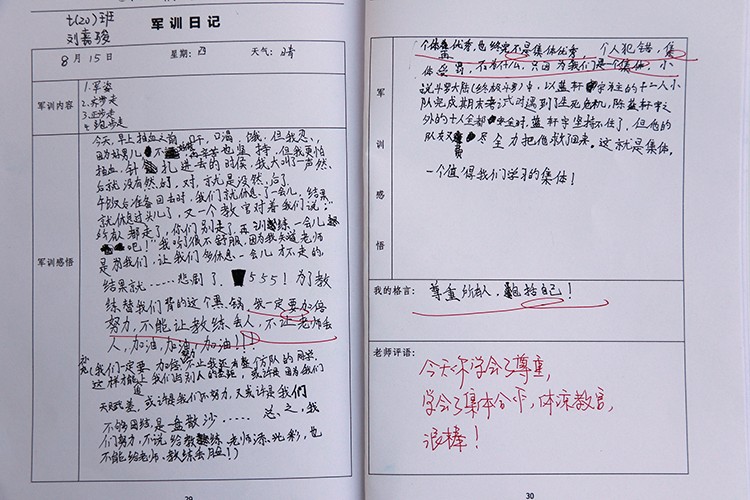 七(20)班
刘嘉骏
军训日记
8月15日 星期:四 天气:晴
军训内容
1.军姿
2.齐步走
3.正步走
4.跑步走
军训感悟
今天,早上抽血之前
因为好男儿 也坚持,但我更怕
抽血,针 扎进去的时候,我大叫了一声然
后就没有然后了,对,就是没然后了
午饭后准备回去时,我们就休息了一会儿,结果
就休息过头儿了,又一个教官对着我们说:
都走了,你们别走了,再训练一会儿
吧!"我听了很不舒服,因为我知道老师
是为我们,让我们多休息一会儿才不走的,
结果就……悲剧了,555!为了教
练替我们背的这个黑锅,我一定要加倍
努力,不能让教练丢人,不让老师丢
人,加油,加油,加油!
(我们一定要加倍努力,不止我还有整个方队的同学,
这样才能追上我们与别人的差距,或许是因为我们
天赋差,或许是我们不努力,又或许是我们
不够团结,是一盘散沙……总之,我
们努力,不说给教练、老师添光彩,也
不能给老师、教练丢脸!)
29
军训感悟
个体再优秀,也终究不是集体优秀, 个人犯错,集
体受罚,不为什么,只因为我们是一个集体,小
说斗罗大陆(终极斗罗)中,以蓝轩宇为主的十一人小
队完成期末考试时遇到了生死危机,除蓝轩宇之
外的十人全都安全时,蓝轩宇坚持不住了,但他的
队友又 尽全力把他救了回来。这就是集体。
一个值得我们学习的集体!
我的格言: 尊重所有人,包括自己!
老师评语:
今天你学会了尊重,
学会了集体合平,体谅教官,
很棒!
30